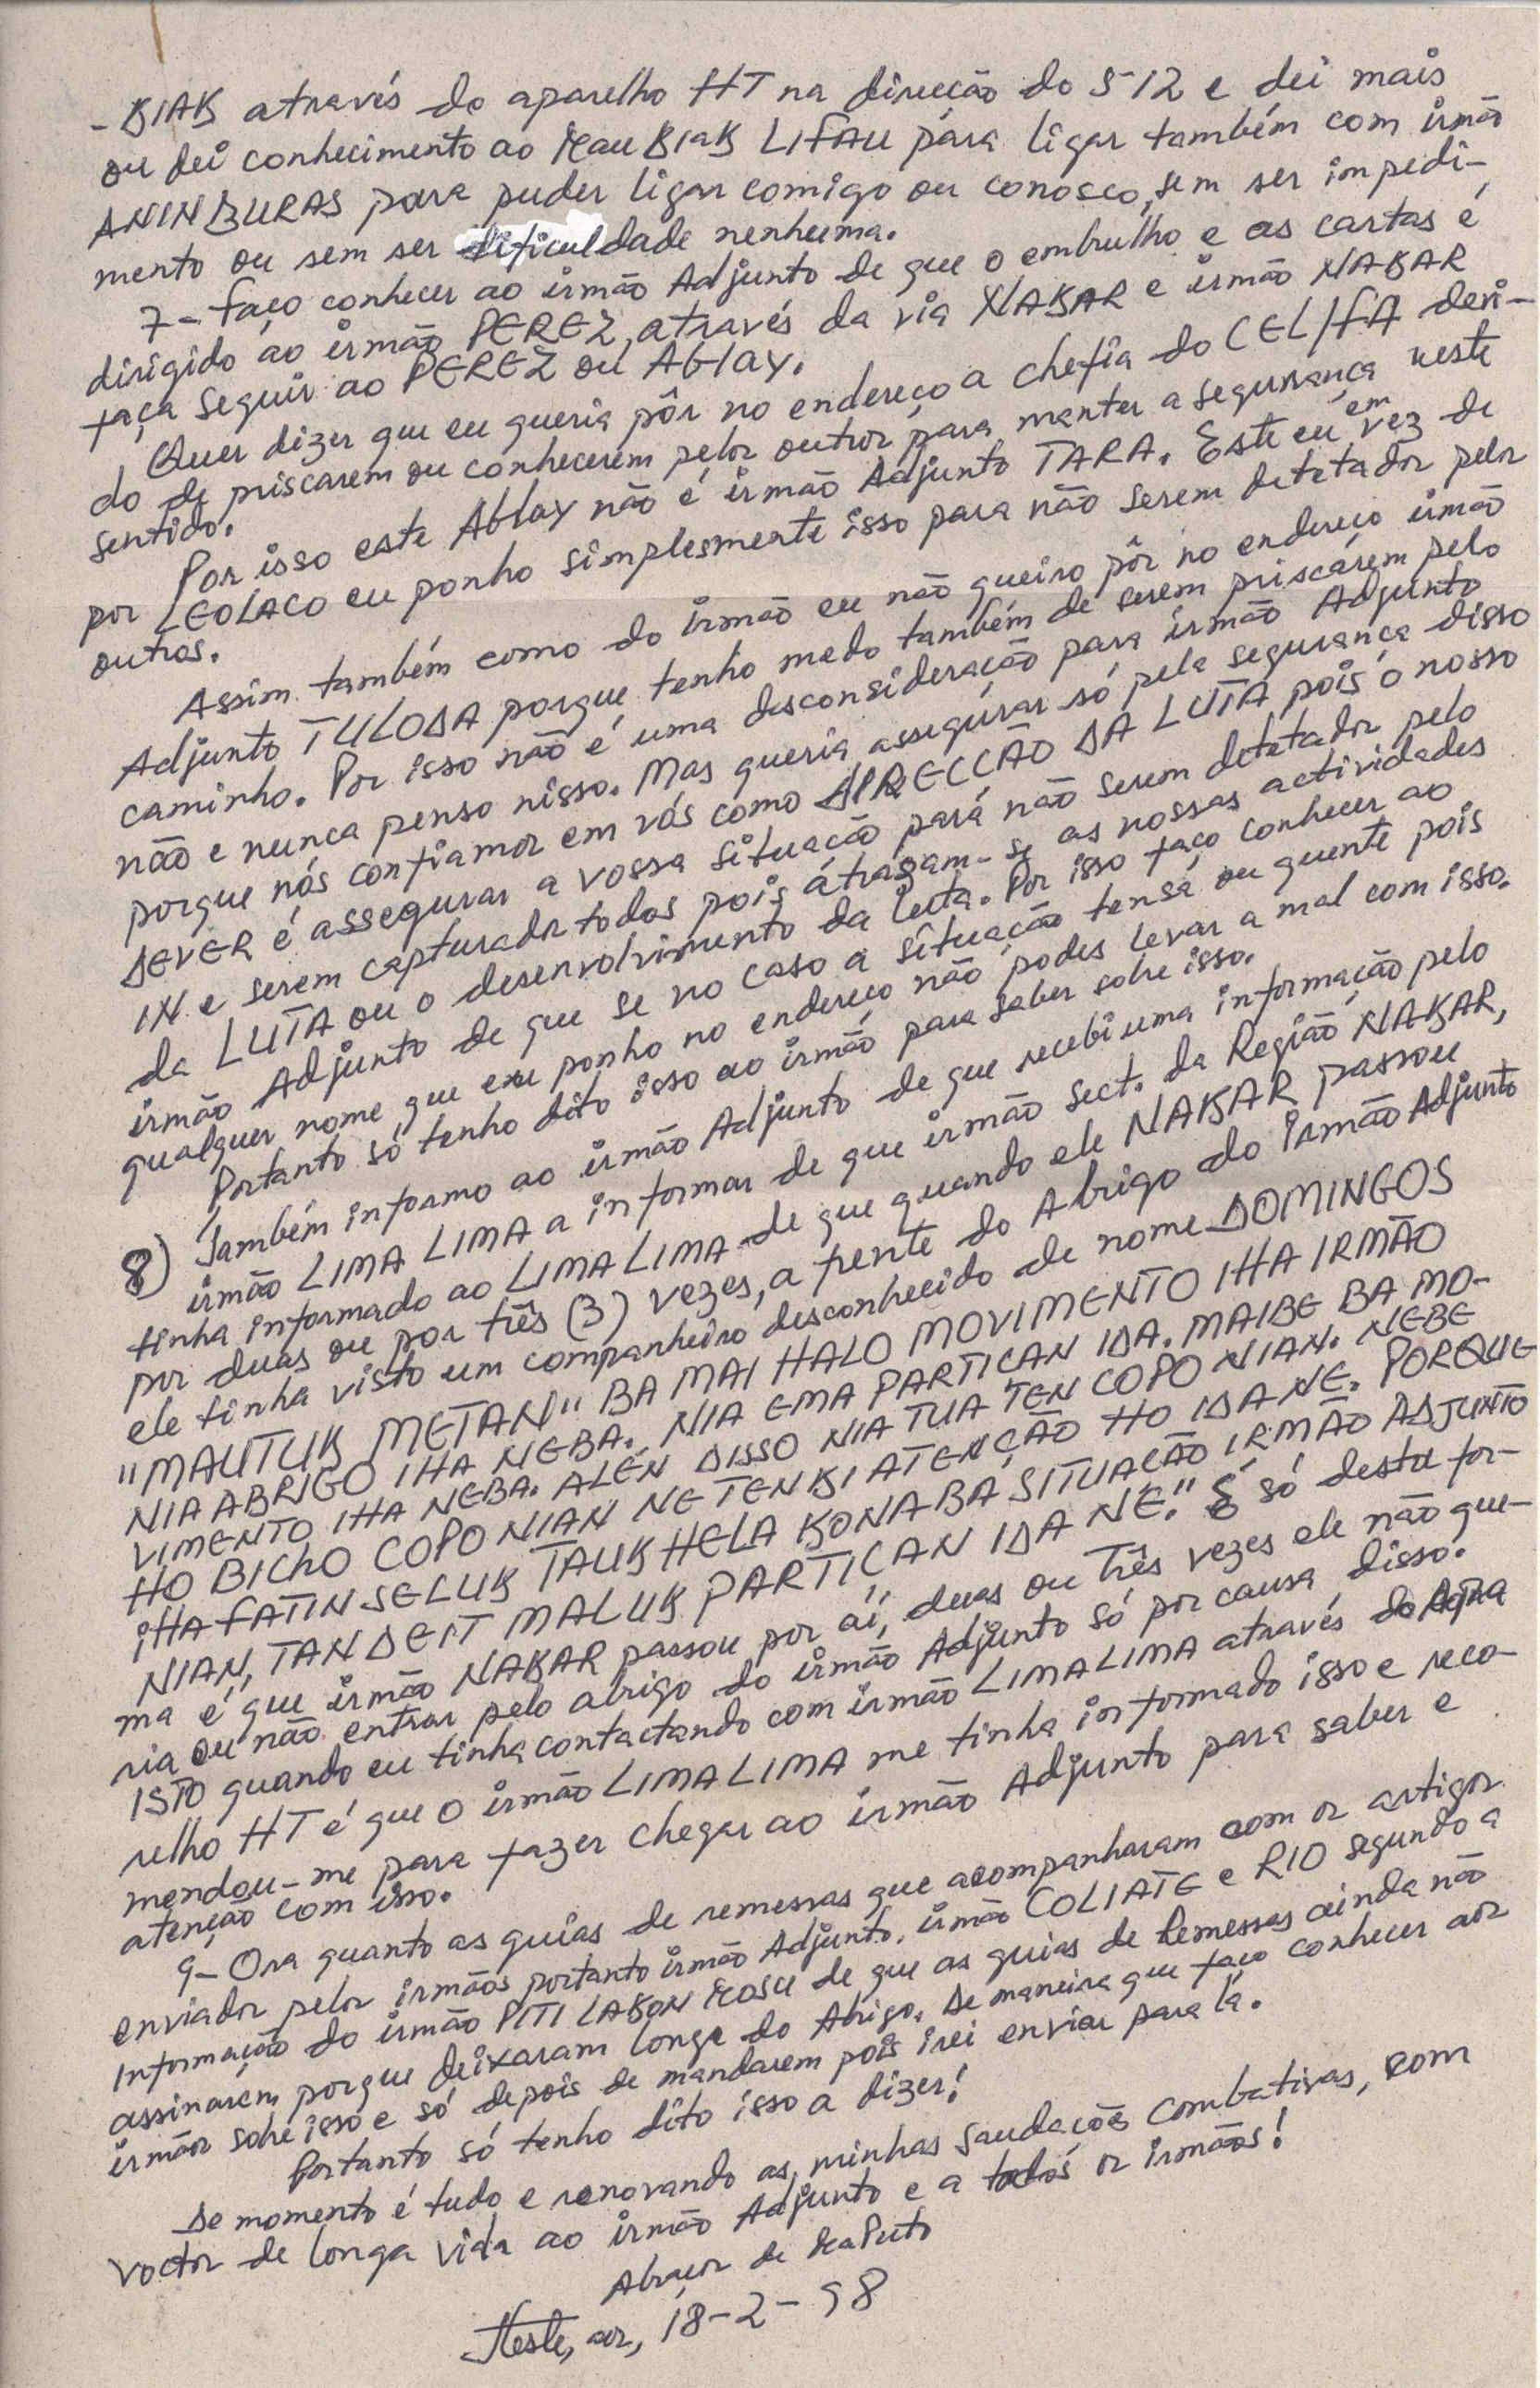 - BIAK através do aparelho HT na direcção do 5-12 e dei mais
ou dei conhecimento ao MauBIAK LIFAU para ligar também com irmão
ANINBURAS para puder ligar comigo ou conosco, sem ser impedi-
mento ou sem ser dificuldade nenhuma.
7- Faço conhecer ao irmão Adjunto de que o embrulho e as cartas é
dirigido ao irmão PEREZ, através da via NAKAR e irmão NAKAR
faça seguir ao PEREZ ou Ablay.
Quer dizer que eu queria pôr no endereço a chefia do CEL/FA devi-
do de priscarem ou conhecerem pelos outros para manter a segurança neste
sentido.
Por isso este Ablay não é irmão Adjunto TARA. Este eu em vez de
por LEOLACO eu ponho simplesmente isso para não serem detetados pelos
outros.
Assim também como do irmão eu não queiro pôr no endereço irmão
Adjunto TULODA porque tenho medo também de serem priscárem pelo
caminho. Por isso não é uma desconsideração para irmão Adjunto
não e nunca penso nisso. Mas queria assegurar só pela segurança disso
porque nós confiamos em vós como DIRECÇÃO DA LUTA pois o nosso
DEVER é assegurar a vossa situação para não serem detetados pelo
IN e serem capturados todos pois átrasam-se as nossas actividades
da LUTA ou o desenvolvimento da luta. Por isso faço conhecer ao
irmão Adjunto de que se no caso a situação tensa ou quente pois
qualquer nome que eu ponho no endereço não podes levar a mal com isso.
Portanto só tenho dito isso ao irmão para saber sobre isso.
8) Também informo ao irmão Adjunto de que recebi uma informação pelo
irmão LIMA LIMA a informar de que irmão Sect. da Região NAKAR,
tinha informado ao LIMA LIMA de que quando ele NAKAR passou
por duas ou por três (3) vezes, a frente do Abrigo do Irmão Adjunto
ele tinha visto um companheiro desconhecido de nome DOMINGOS
"MAUTUK METAN" BA MAI HALO MOVIMENTO IHA IRMÃO
NIA ABRIGO IHA NEBA. NIA EMA PARTICAN IDA. MAIBE BA MO-
VIMENTO IHA NEBA. ALÉN DISSO NIA TUA TEN COPO NIAN. NEBE
HO BICHO COPO NIAN NE TENKI ATENÇÃO HO IDA NE. PORQUE
IHA FATIN SELUK TAUK HELA KONABA SITUAÇÃO IRMÃO ADJUNTO
NIAN, TAN DEIT MALUK PARTICAN IDA NE." É só desta for-
ma é que irmão NAKAR passou por aí, duas ou três vezes ele não que-
ria ou não entrar pelo abrigo do irmão Adjunto só por causa disso.
ISTO quando eu tinha contactando com irmão LIMA LIMA através do Apa
relho HT é que o irmão LIMA LIMA me tinha informado isso e reco-
mendou-me para fazer chegar ao irmão Adjunto para saber e
atenção com isso.
9- Ora quanto as guias de remessas que acompanharam com os artigos
enviados pelos irmãos portanto irmão Adjunto, irmão COLIATE e RIO segundo a
Informação do irmão PITI LAKON de que as guias de Remessas ainda não
assinarem porque deixaram longe do Abrigo. De maneira que faço conhecer aos
irmãos sobre isso e só depois de mandarem pois irei enviar para lá.
Portanto só tenho dito isso a dizer!
De momento é tudo e renovando as minhas saudações combativas, com
voctos de longa vida ao irmão Adjunto e a todos os irmãos!
Abraços de
Neste, aos, 18-2-98